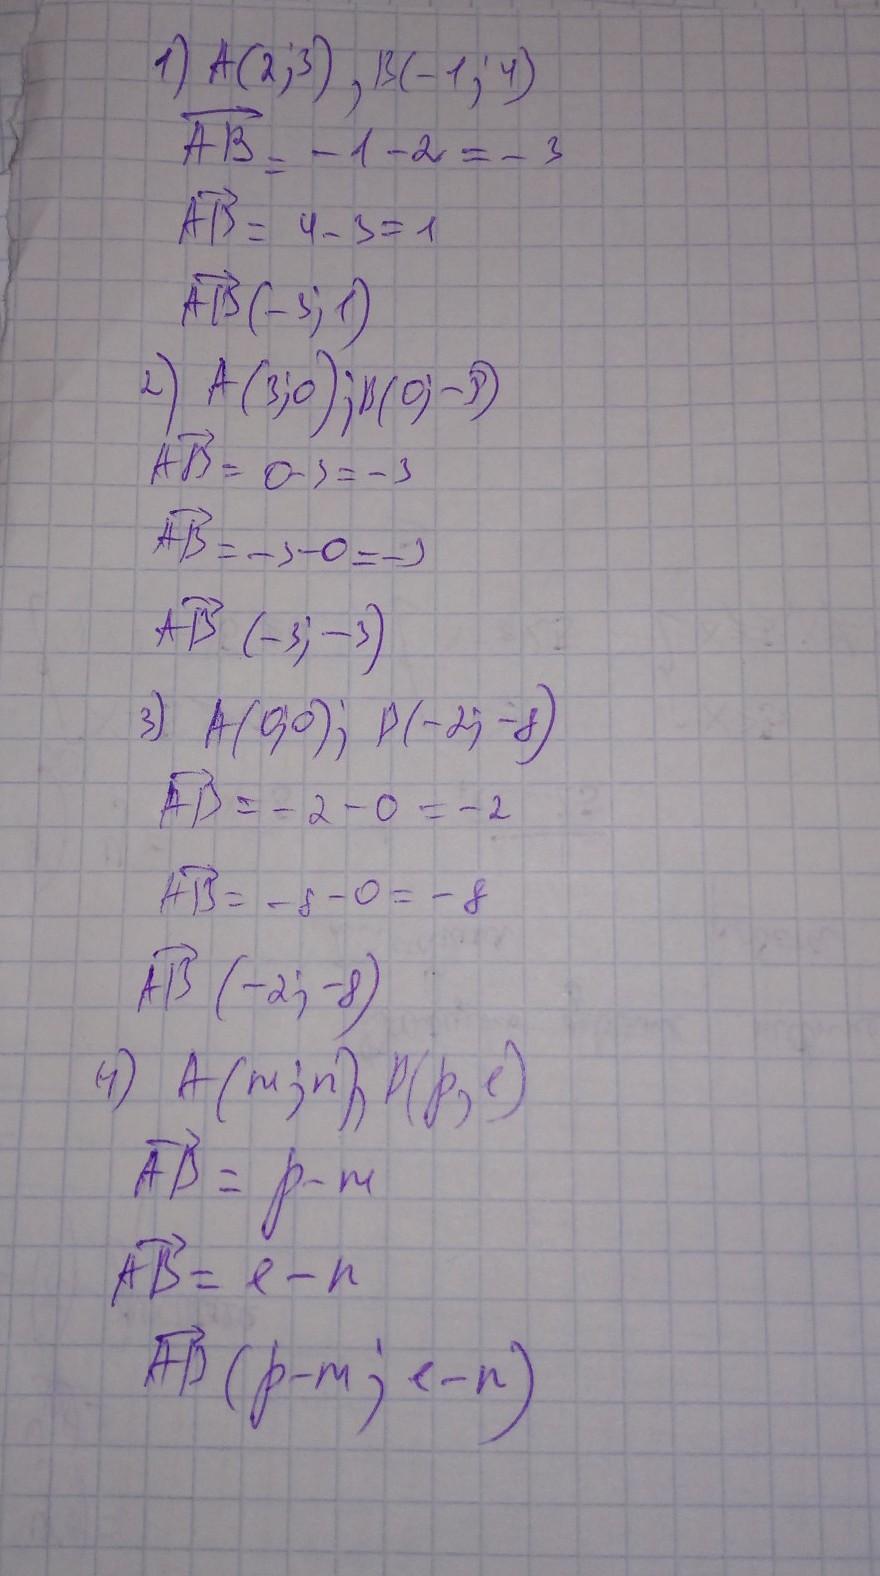 1) A(2;3), B(-1;4)
AB = -1-2 = -3
AB = 4-3=1
AB(-3;1)
2) A(3;0);B(0;-3)
AB = 0-3=-3
AB = -3-0=-3
AB (-3;-3)
3) A(0;0); B(-2;-8)
AB = -2-0 = -2
AB = -8-0 = -8
AB (-2;-8)
4) A(m;n), B(p;e)
AB = p-m
AB = e-n
AB (p-m; e-n)